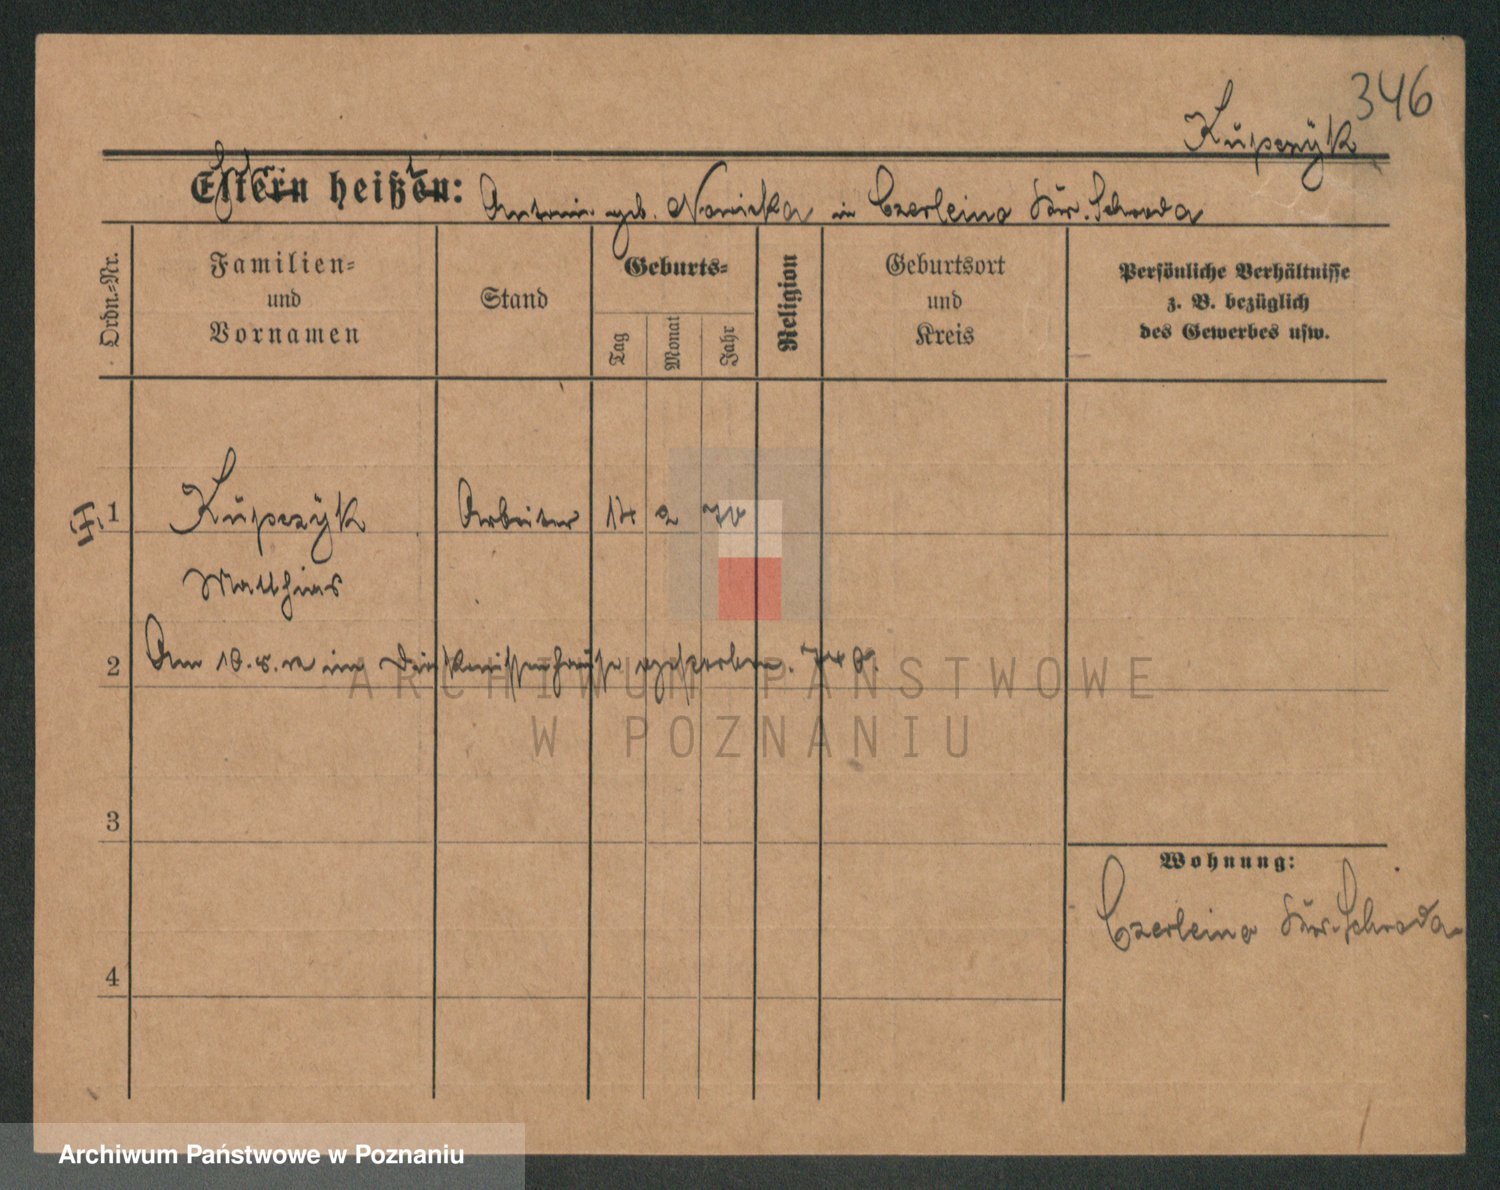 346
Kupczyk
Eltern heißen: Antonie geb. Nowicka in Czerleino Kr. Schroda
Ordn.=Nr.
Familien=
und
Vornamen
Stand
Geburts=
Tag
Monat
Jahr
Religion
Geburtsort
und
Kreis
Persönliche Verhältnisse
z. B. bezüglich
des Gewerbes usw.
1 Kupczyk Arbeiter 14 2 70
Matthias
2 Am 10. 5. im Diakonissenhause gestorben.
ARCHIWUM PAŃSTWOWE
W POZNANIU
3
Wohnung:
Czerleino Kr. Schroda
4
Archiwum Państwowe w Poznaniu